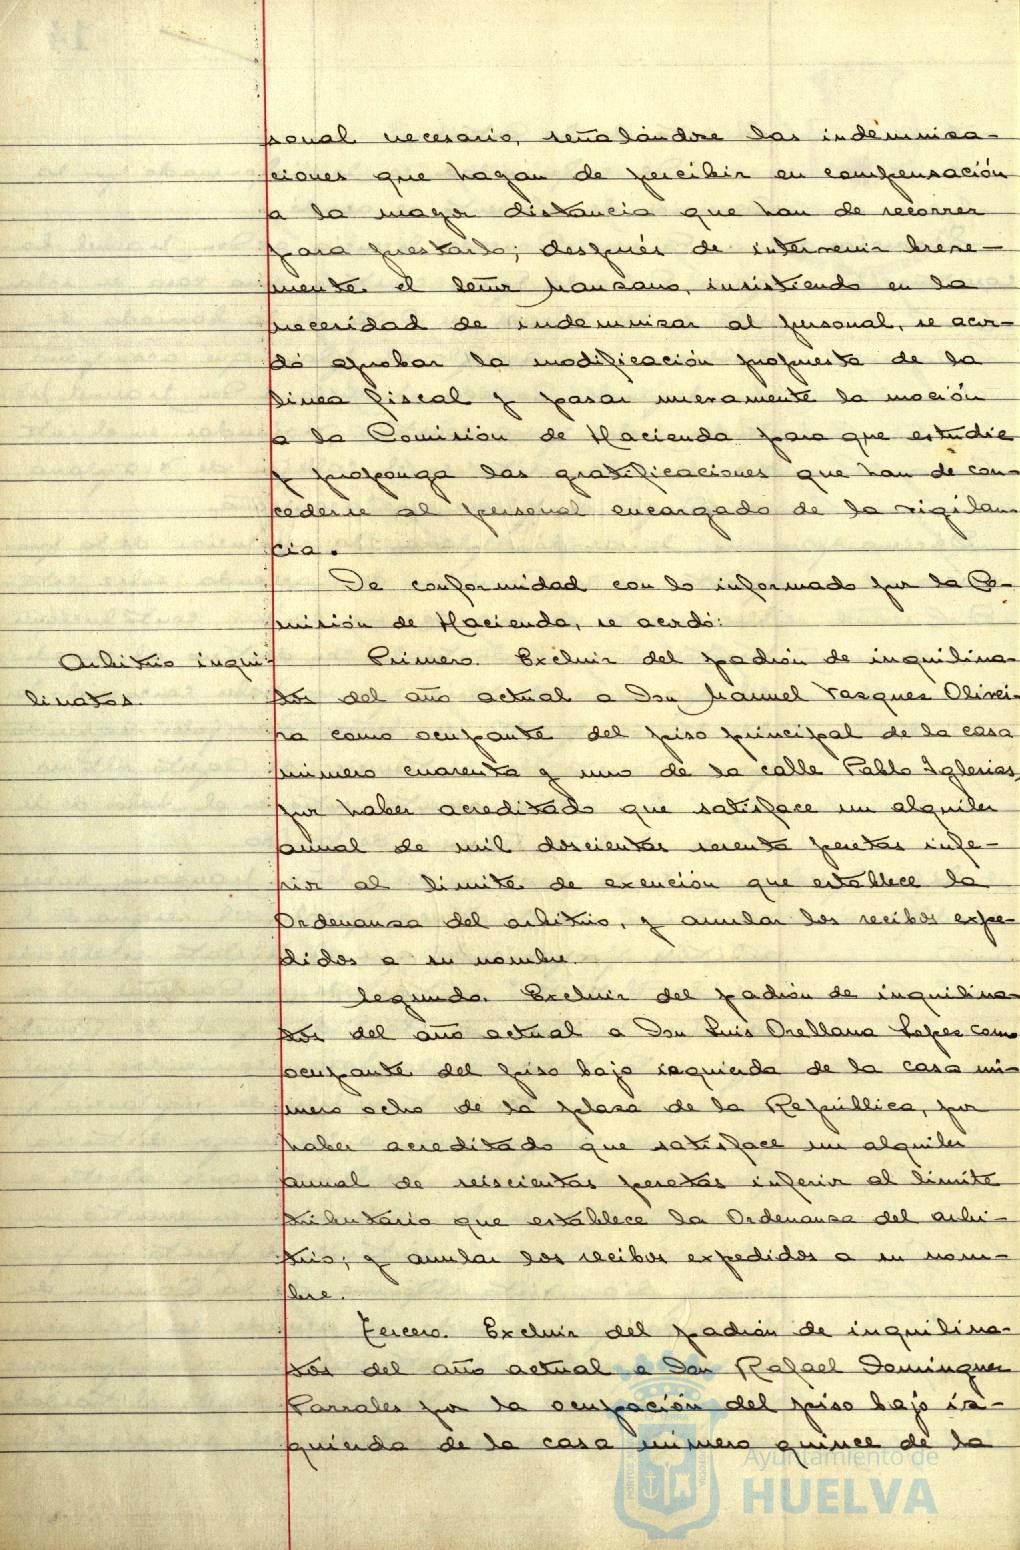 sonal necesario, señalándose las indemniza-
ciones que hagan de percibir en compensación
a la mayor distancia que han de recorrer
para prestarlo; después de intervenir breve-
mente el señor Manzano, insistiendo en la
necesidad de indemnizar al personal, se acor-
dó aprobar la modificación propuesta de la
línea fiscal y pasar nuevamente la moción
a la Comisión de Hacienda para que estudie
y proponga las gratificaciones que han de con-
cederse al personal encargado de la vigilan-
cia.
De conformidad con lo informado por la Co-
misión de Hacienda, se acordó:
Arbitrio inqui-
linatos.
Primero. Excluir del padrón de inquilina-
tos del año actual a Don Manuel Vazquez Olivei-
ra como ocupante del piso principal de la casa
número cuarenta y uno de la calle Pablo Iglesias,
por haber acreditado que satisface un alquiler
anual de mil doscientas sesenta pesetas infe-
rior al límite de exención que establece la
Ordenanza del arbitrio, y anular los recibos expe-
didos a su nombre.
Segundo. Excluir del padrón de inquilina-
tos del año actual a Don Luis Orellana Lopez como
ocupante del piso bajo izquierda de la casa nú-
mero ocho de la plaza de la República, por
haber acreditado que satisface un alquiler
anual de seiscientas pesetas inferior al límite
tributario que establece la Ordenanza del arbi-
trio; y anular los recibos expedidos a su nom-
bre.
Tercero. Excluir del padrón de inquilina-
tos del año actual a Don Rafael Dominguez
Parrales por la ocupación del piso bajo iz-
quierda de la casa número quince de la
Ayuntamiento de
HUELVA